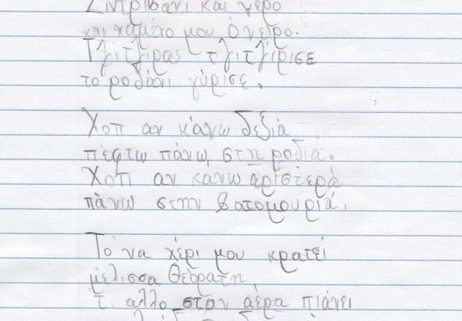 Σιντριβάνι και νερό
και χαμένο μου όνειρο.
Τζίτζιρας τζιτζίρισε
το ροδάνι γύρισε.
Χοπ αν κάνω δεξιά
πέφτω πάνω στη ροδιά.
Χοπ αν κάνω αριστερά
πάνω στην βατομουριά.
Το να χέρι μου κρατεί
μέλισσα θεόρατη
τ αλλο στον αέρα πιάνει